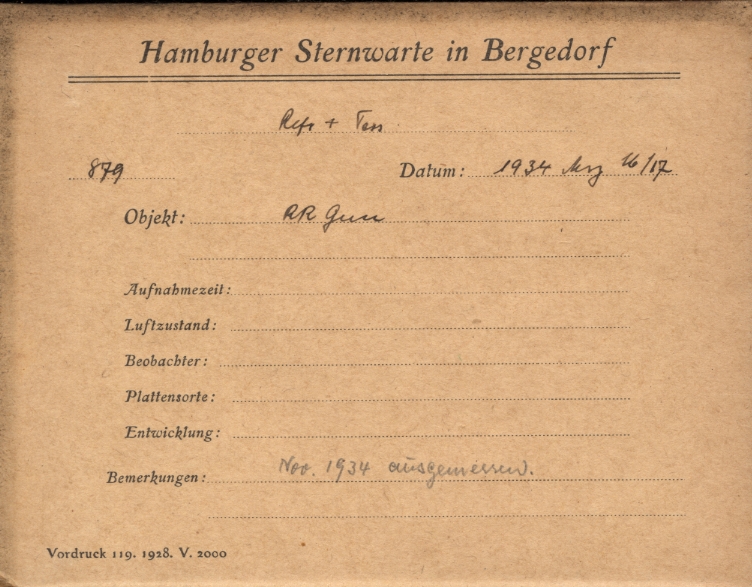 Hamburger Sternwarte in Bergedorf
Refr + Tess
879 Datum: 1934 März 16/17
Objekt: RR Gem
Aufnahmezeit:
Luftzustand:
Beobachter:
Plattensorte:
Entwicklung:
Bemerkungen: Nov. 1934 ausgemessen.
Vordruck 119. 1928. V. 2000